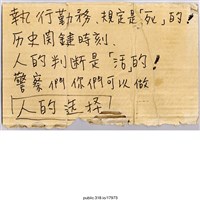 執行勤務．規定是「死」的！
历史関鍵時刻．
人的判断是「活」的！
警察們你們可以做
人的选择
public.318.io/17973